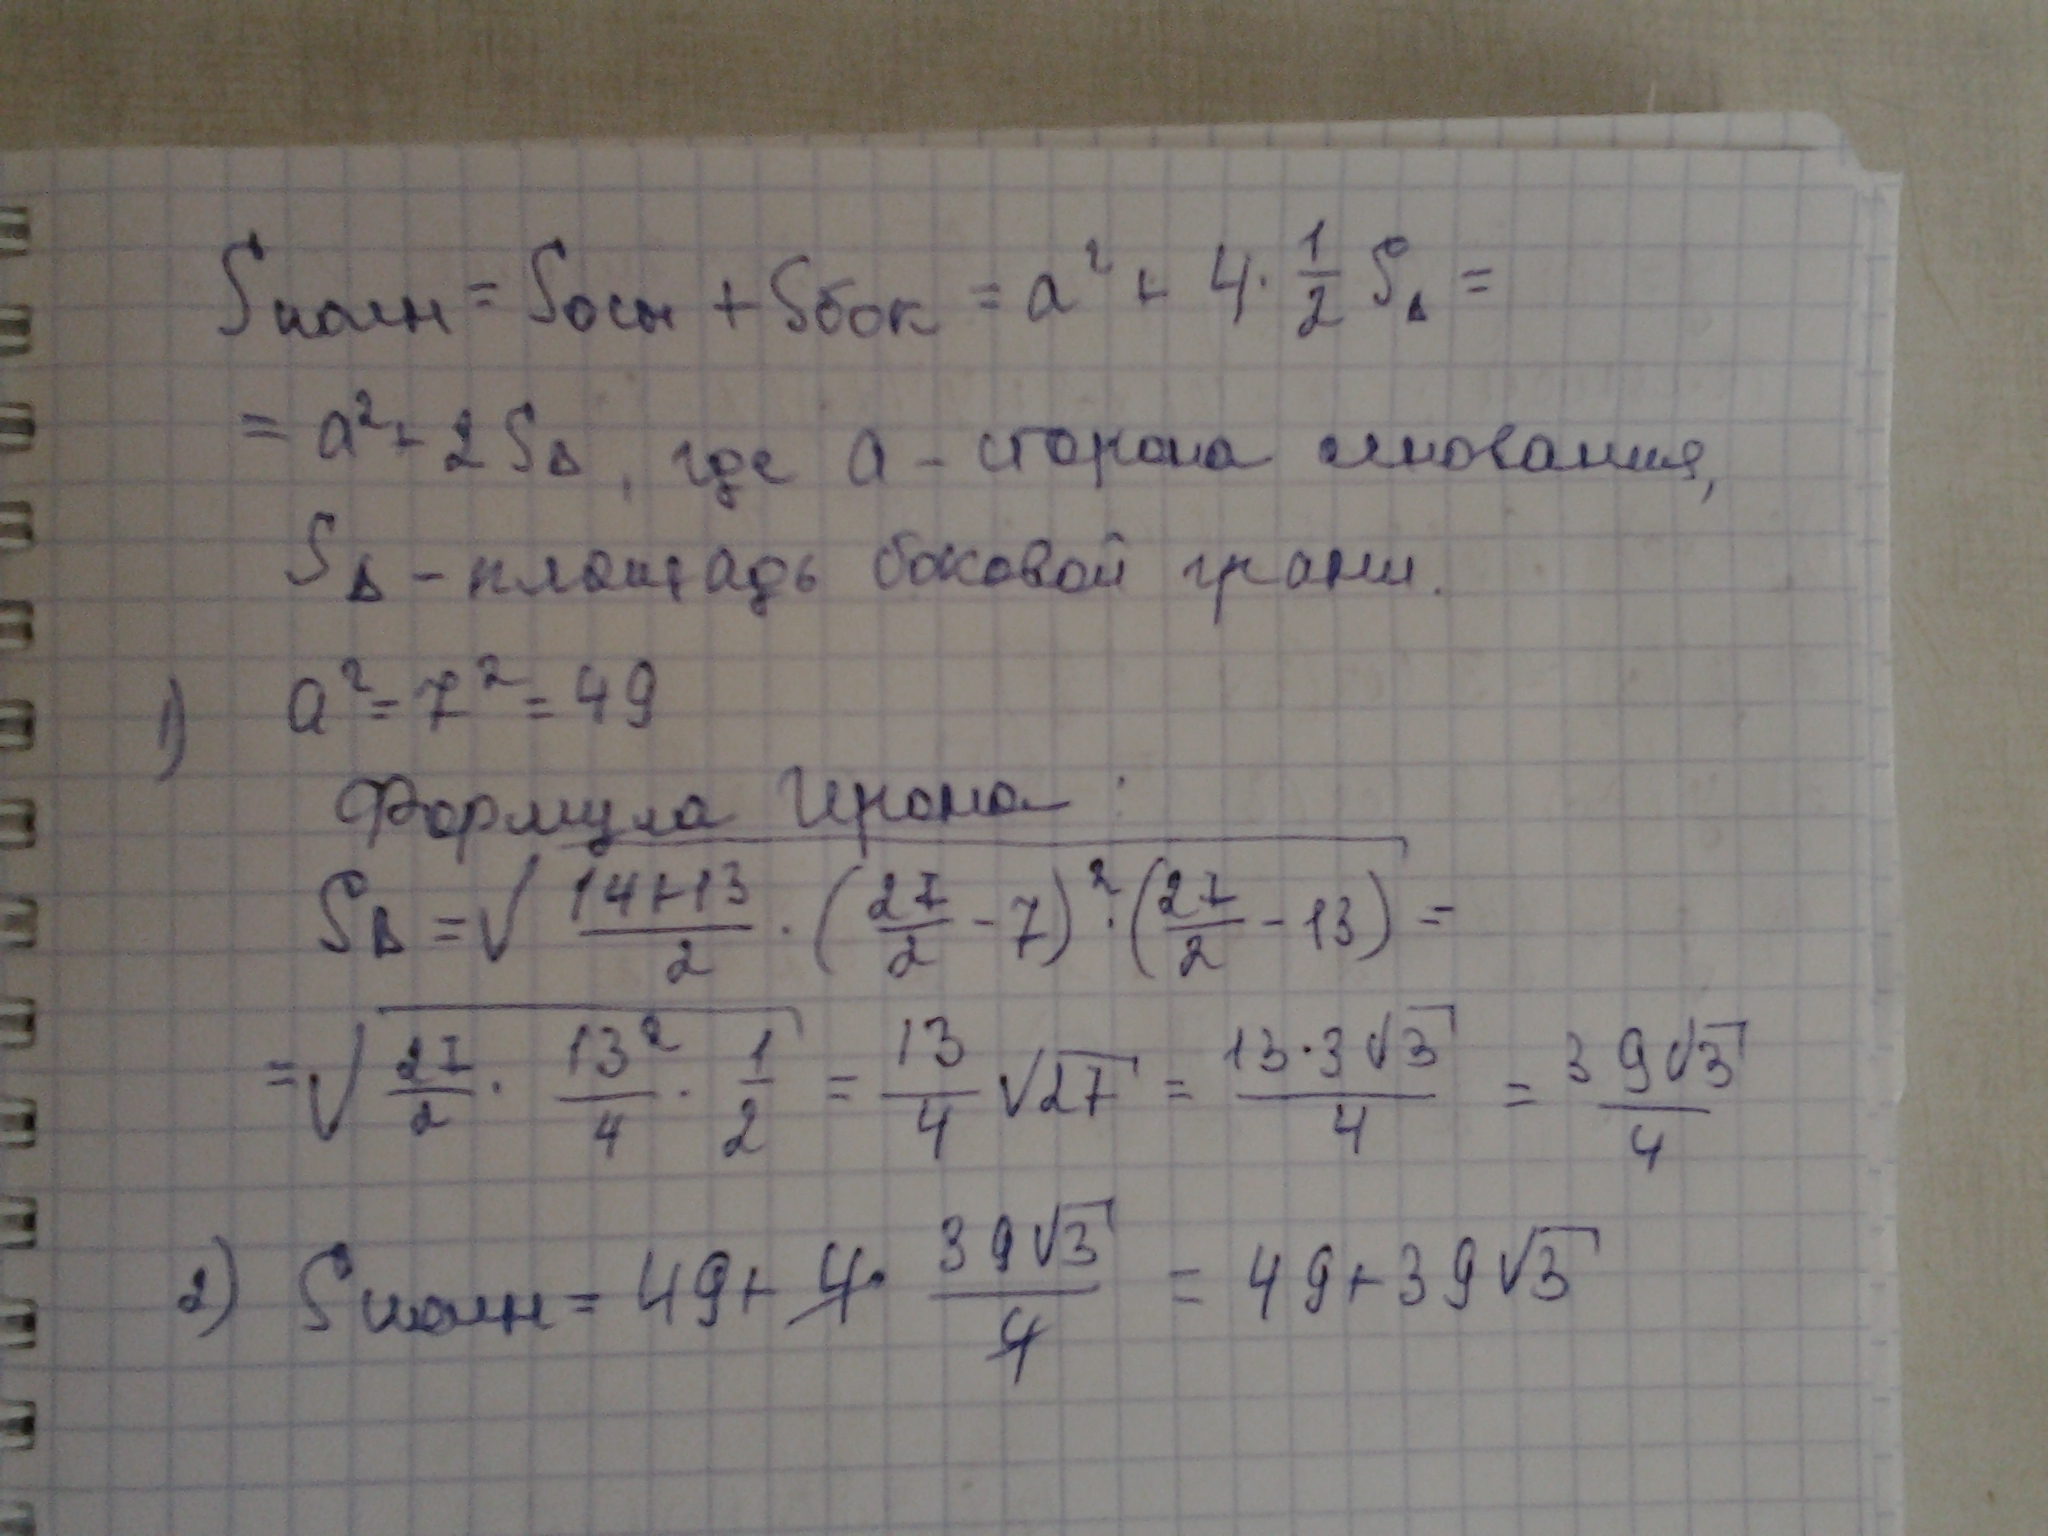 Sполн = Sосн + Sбок = a² + 4 · 1/2 S△ =
= a² + 2S△, где a - сторона основания,
S△ - площадь боковой грани.
1) a² = 7² = 49
Формула Герона:
S△ = √(14+13)/2 · (27/2 - 7)² · (27/2 - 13) =
= √27/2 · 13²/4 · 1/2 = 13/4 √27 = 13·3√3/4 = 39√3/4
2) Sполн = 49 + 4 · 39√3/4 = 49 + 39√3